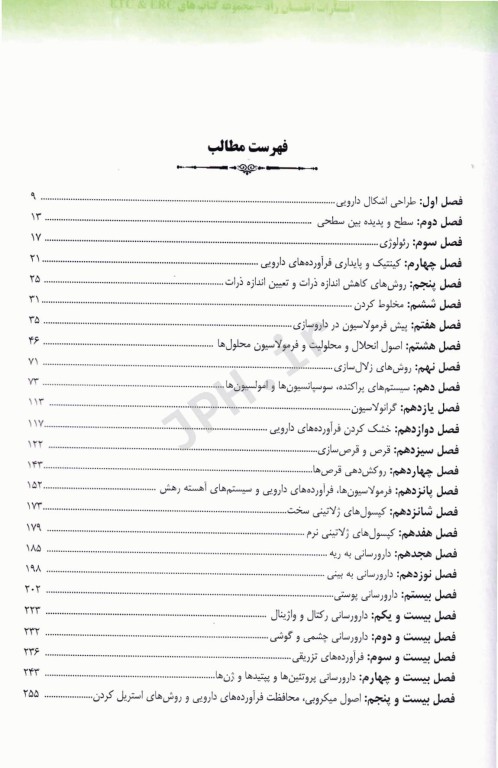 انتشارات اطمینان راد - مجموعه کتاب‌های ETC & ERC
فهرست مطالب
فصل اول: طراحی اشکال دارویی ۹
فصل دوم: سطح و پدیده بین سطحی ۱۳
فصل سوم: رئولوژی ۱۷
فصل چهارم: کینتیک و پایداری فرآورده‌های دارویی ۲۱
فصل پنجم: روش‌های کاهش اندازه ذرات و تعیین اندازه ذرات ۲۵
فصل ششم: مخلوط کردن ۳۱
فصل هفتم: پیش فرمولاسیون در داروسازی ۳۵
فصل هشتم: اصول انحلال و محلولیت و فرمولاسیون محلول‌ها ۴۶
فصل نهم: روش‌های زلال‌سازی ۷۱
فصل دهم: سیستم‌های پراکنده، سوسپانسیون‌ها و امولسیون‌ها ۷۳
فصل یازدهم: گرانولاسیون ۱۱۳
فصل دوازدهم: خشک کردن فرآورده‌های دارویی ۱۱۷
فصل سیزدهم: قرص و قرص‌سازی ۱۲۲
فصل چهاردهم: روکش‌دهی قرص‌ها ۱۴۳
فصل پانزدهم: فرمولاسیون‌ها، فرآورده‌های دارویی و سیستم‌های آهسته رهش ۱۵۲
فصل شانزدهم: کپسول‌های ژلاتینی سخت ۱۷۳
فصل هفدهم: کپسول‌های ژلاتینی نرم ۱۷۹
فصل هجدهم: دارورسانی به ریه ۱۸۵
فصل نوزدهم: دارورسانی به بینی ۱۹۸
فصل بیستم: دارورسانی پوستی ۲۰۲
فصل بیست و یکم: دارورسانی رکتال و واژینال ۲۲۳
فصل بیست و دوم: دارورسانی چشمی و گوشی ۲۳۲
فصل بیست و سوم: فرآورده‌های تزریقی ۲۳۶
فصل بیست و چهارم: دارورسانی پروتئین‌ها و پپتیدها و ژن‌ها ۲۴۳
فصل بیست و پنجم: اصول میکروبی، محافظت فرآورده‌های دارویی و روش‌های استریل کردن ۲۵۵
JPH.ir